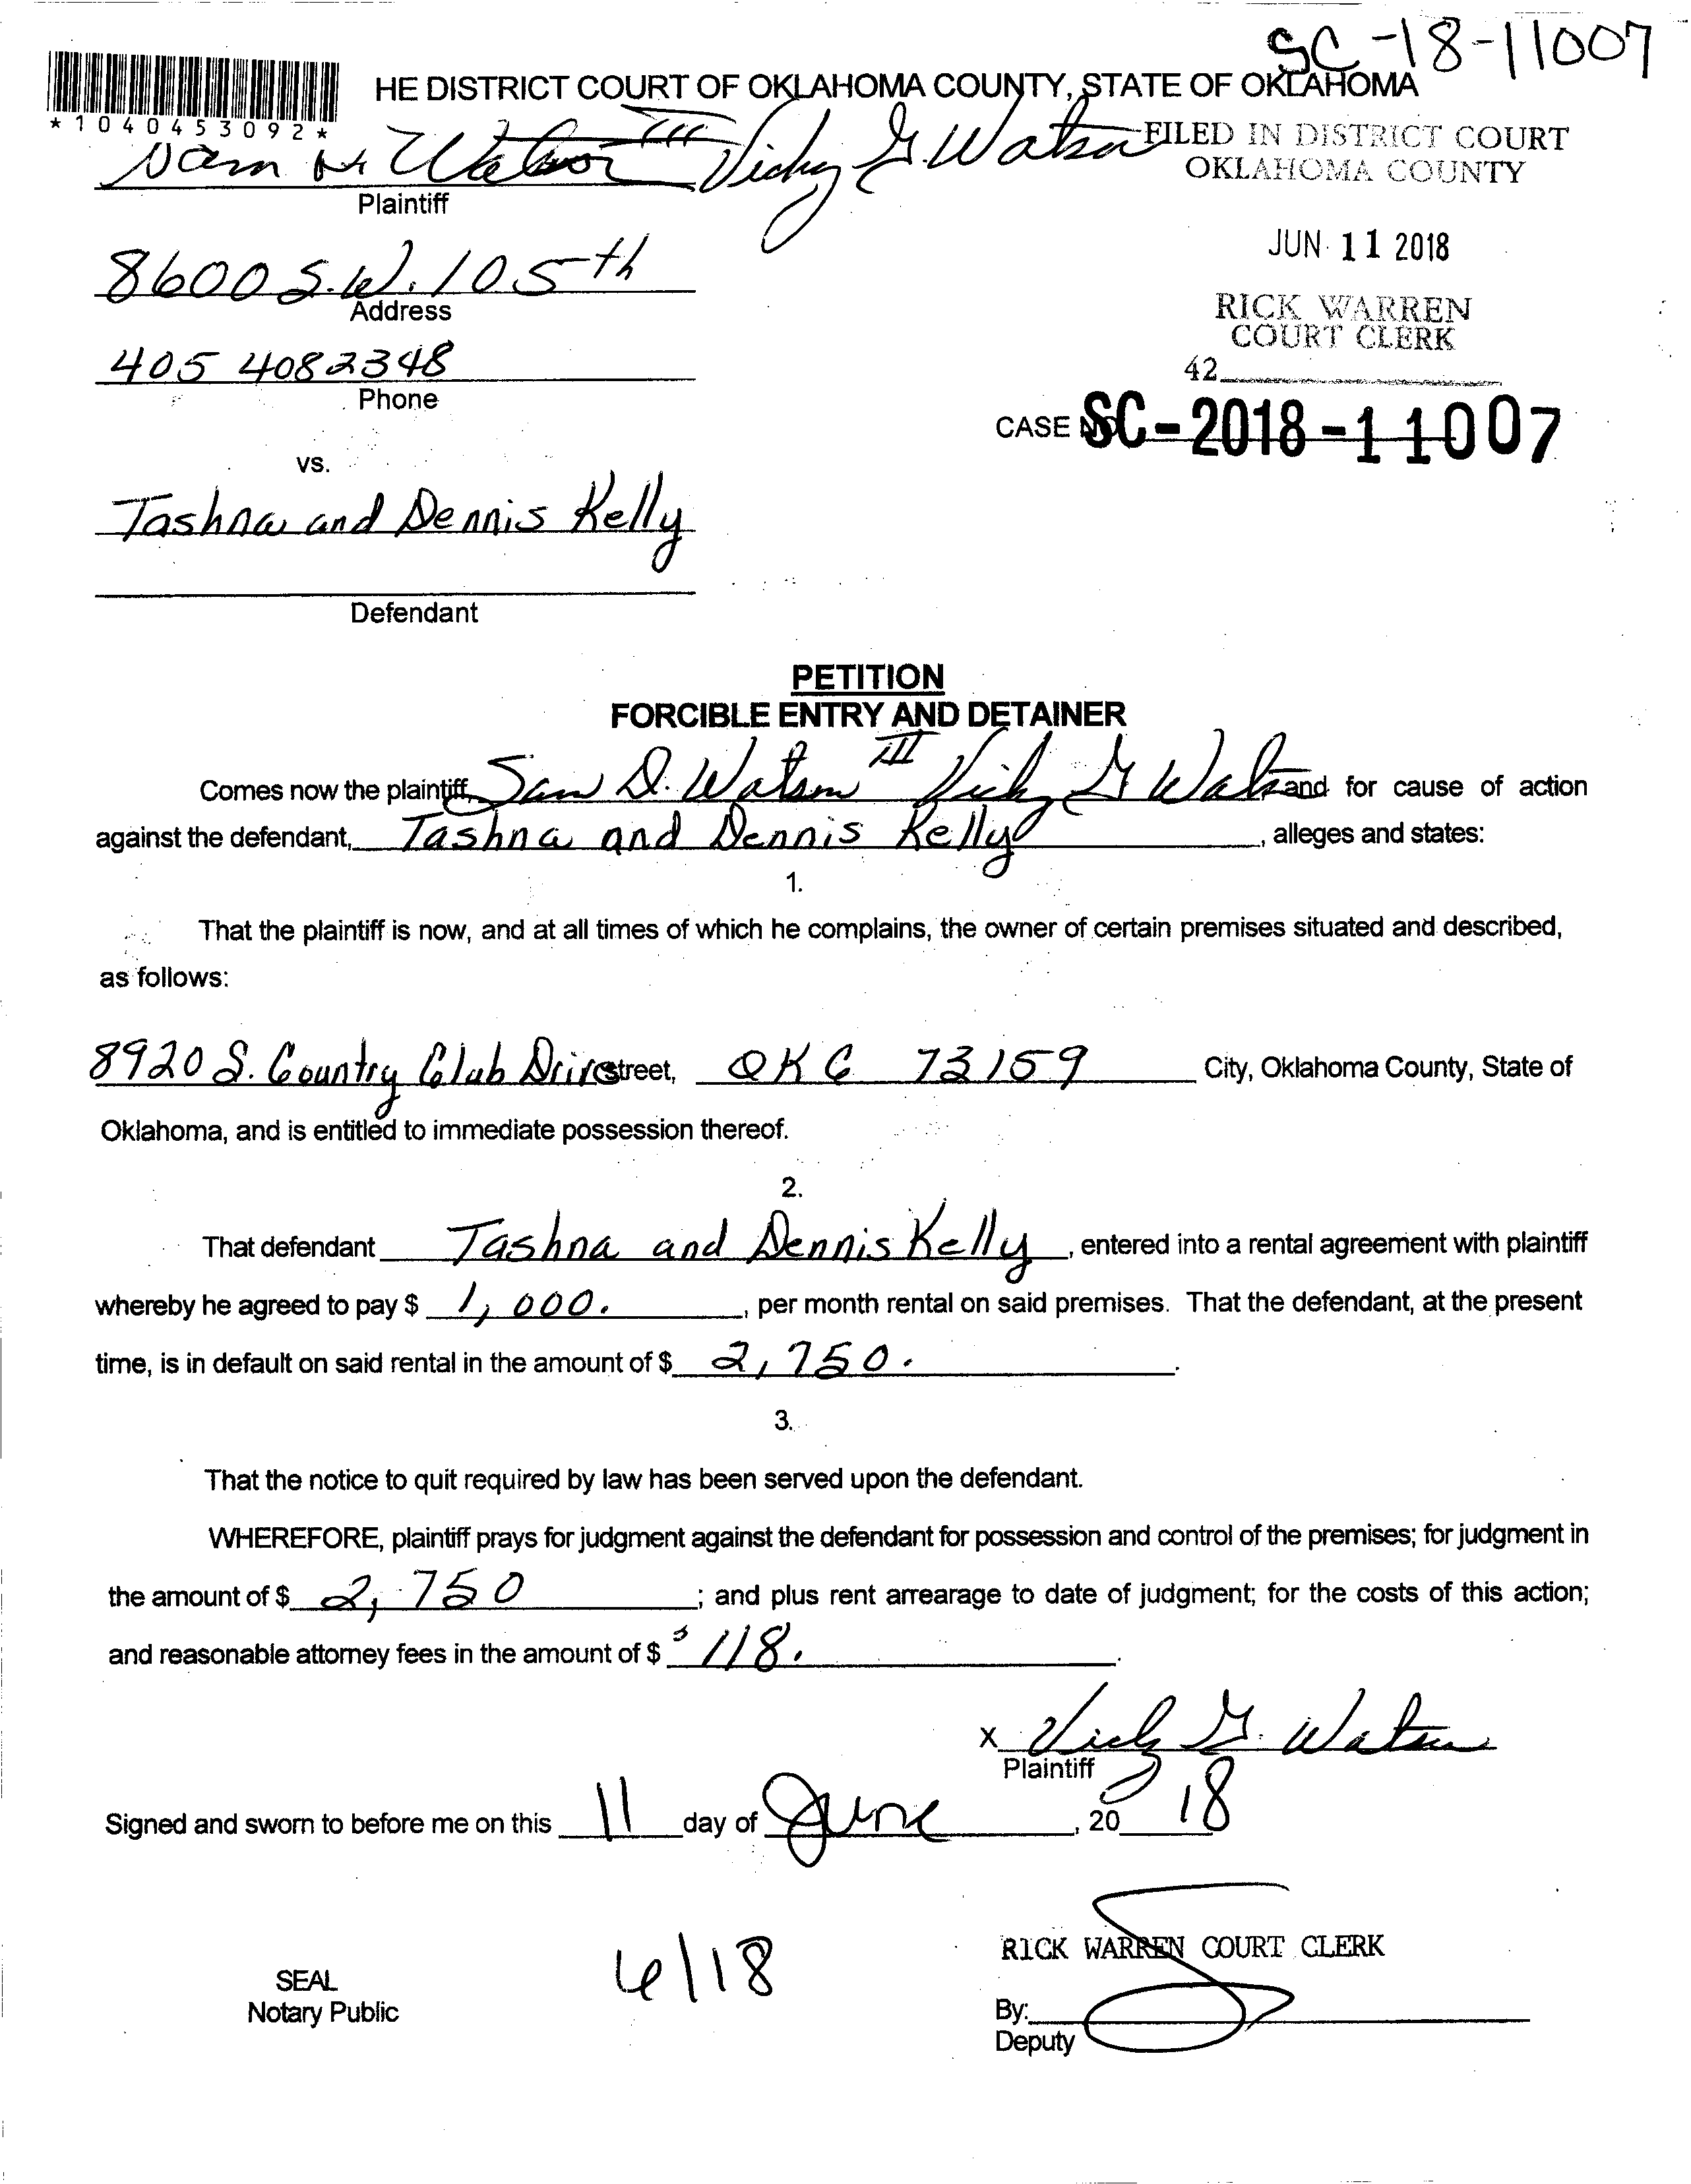 SC-18-11007
HE DISTRICT COURT OF OKLAHOMA COUNTY, STATE OF OKLAHOMA
*1040453092*
Sam Watson III Vicky G. Watson
FILED IN DISTRICT COURT
OKLAHOMA COUNTY
Plaintiff
JUN 11 2018
8600 S.W. 105th
Address
RICK WARREN
COURT CLERK
405 4082348
42
Phone
CASE NO SC-2018-11007
vs.
Tashna and Dennis Kelly
Defendant
PETITION
FORCIBLE ENTRY AND DETAINER
Comes now the plaintiff, Sam D. Watson III Vicky G Watson and for cause of action
against the defendant, Tashna and Dennis Kelly, alleges and states:
1.
That the plaintiff is now, and at all times of which he complains, the owner of certain premises situated and described,
as follows:
8920 S. Country Club Drive street, OKC 73159 City, Oklahoma County, State of
Oklahoma, and is entitled to immediate possession thereof.
2.
That defendant Tashna and Dennis Kelly, entered into a rental agreement with plaintiff
whereby he agreed to pay $ 1,000., per month rental on said premises. That the defendant, at the present
time, is in default on said rental in the amount of $ 2,750..
3.
That the notice to quit required by law has been served upon the defendant.
WHEREFORE, plaintiff prays for judgment against the defendant for possession and control of the premises; for judgment in
the amount of $ 2,750; and plus rent arrearage to date of judgment; for the costs of this action;
and reasonable attorney fees in the amount of $ $118..
X Vicky G. Watson
Plaintiff
Signed and sworn to before me on this 11 day of June, 20 18
RICK WARREN COURT CLERK
SEAL
6/18
Notary Public
By:
Deputy